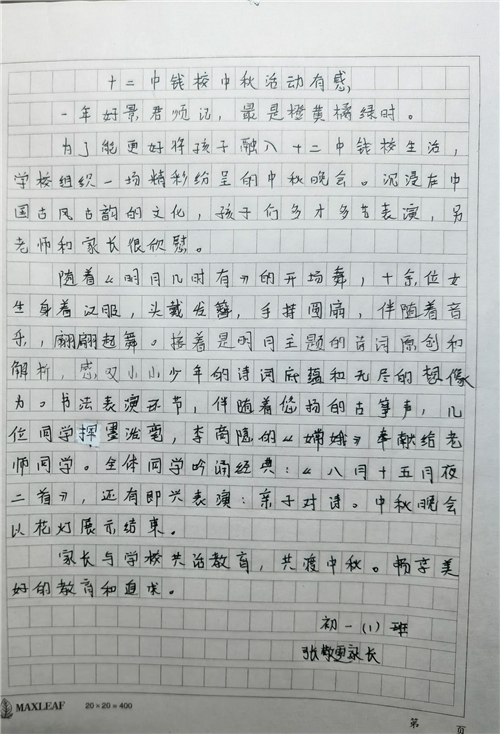 十二中钱校中秋活动有感
一年好景君须记，最是橙黄橘绿时。
为了能更好将孩子融入十二中钱校生活，
学校组织一场精彩纷呈的中秋晚会。沉浸在中
国古风古韵的文化，孩子们多才多艺表演，另
老师和家长很欣慰。
随着《明月几时有》的开场舞，十余位女
生身着汉服，头戴发簪，手持圆扇，伴随着音
乐，翩翩起舞。接着是明月主题的诗词原创和
解析，感叹小小少年的诗词底蕴和无尽的想像
力。书法表演环节，伴随着悠扬的古筝声，几
位同学挥墨泼毫，李商隐的《嫦娥》奉献给老
师同学。全体同学吟诵经典：《八月十五月夜
二首》，还有即兴表演：亲子对诗。中秋晚会
以花灯展示结束。
家长与学校共话教育，共渡中秋。畅享美
好的教育和追求。
初一（1）班
张家长
MAXLEAF 20×20=400 第 页